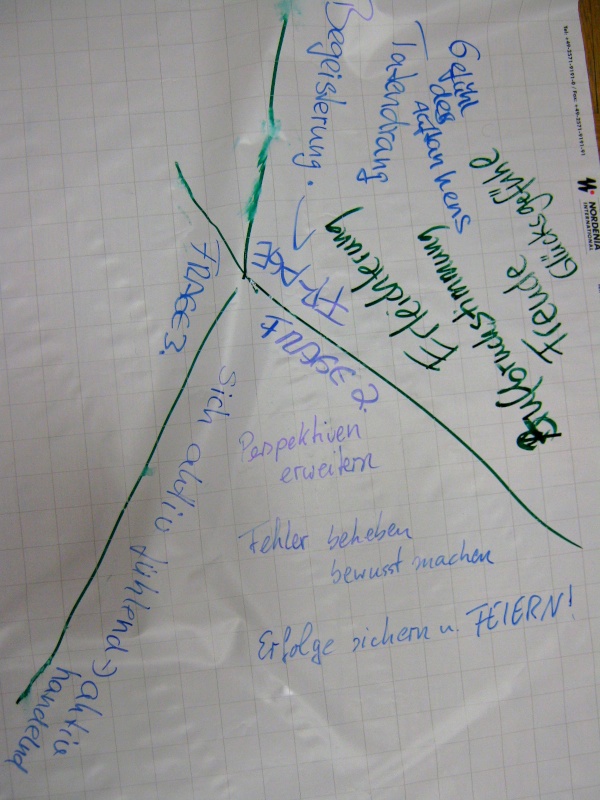 Tel. +49-2571-9191-0 / Fax: +49-2571-9191-91
NORDENIA
INTERNATIONAL
Gefühl
des
Tatendrang
Begeisterung.
FRAGE
Glücksgefühle
Freude
Aufbruchstimmung
Erleichterung
2.
Perspektiven
erweitern
Fehler beheben
bewusst machen
Erfolge sichern u. FEIERN!
FRAGE 3.
Sich aktiv fühlend → aktiv
handelnd